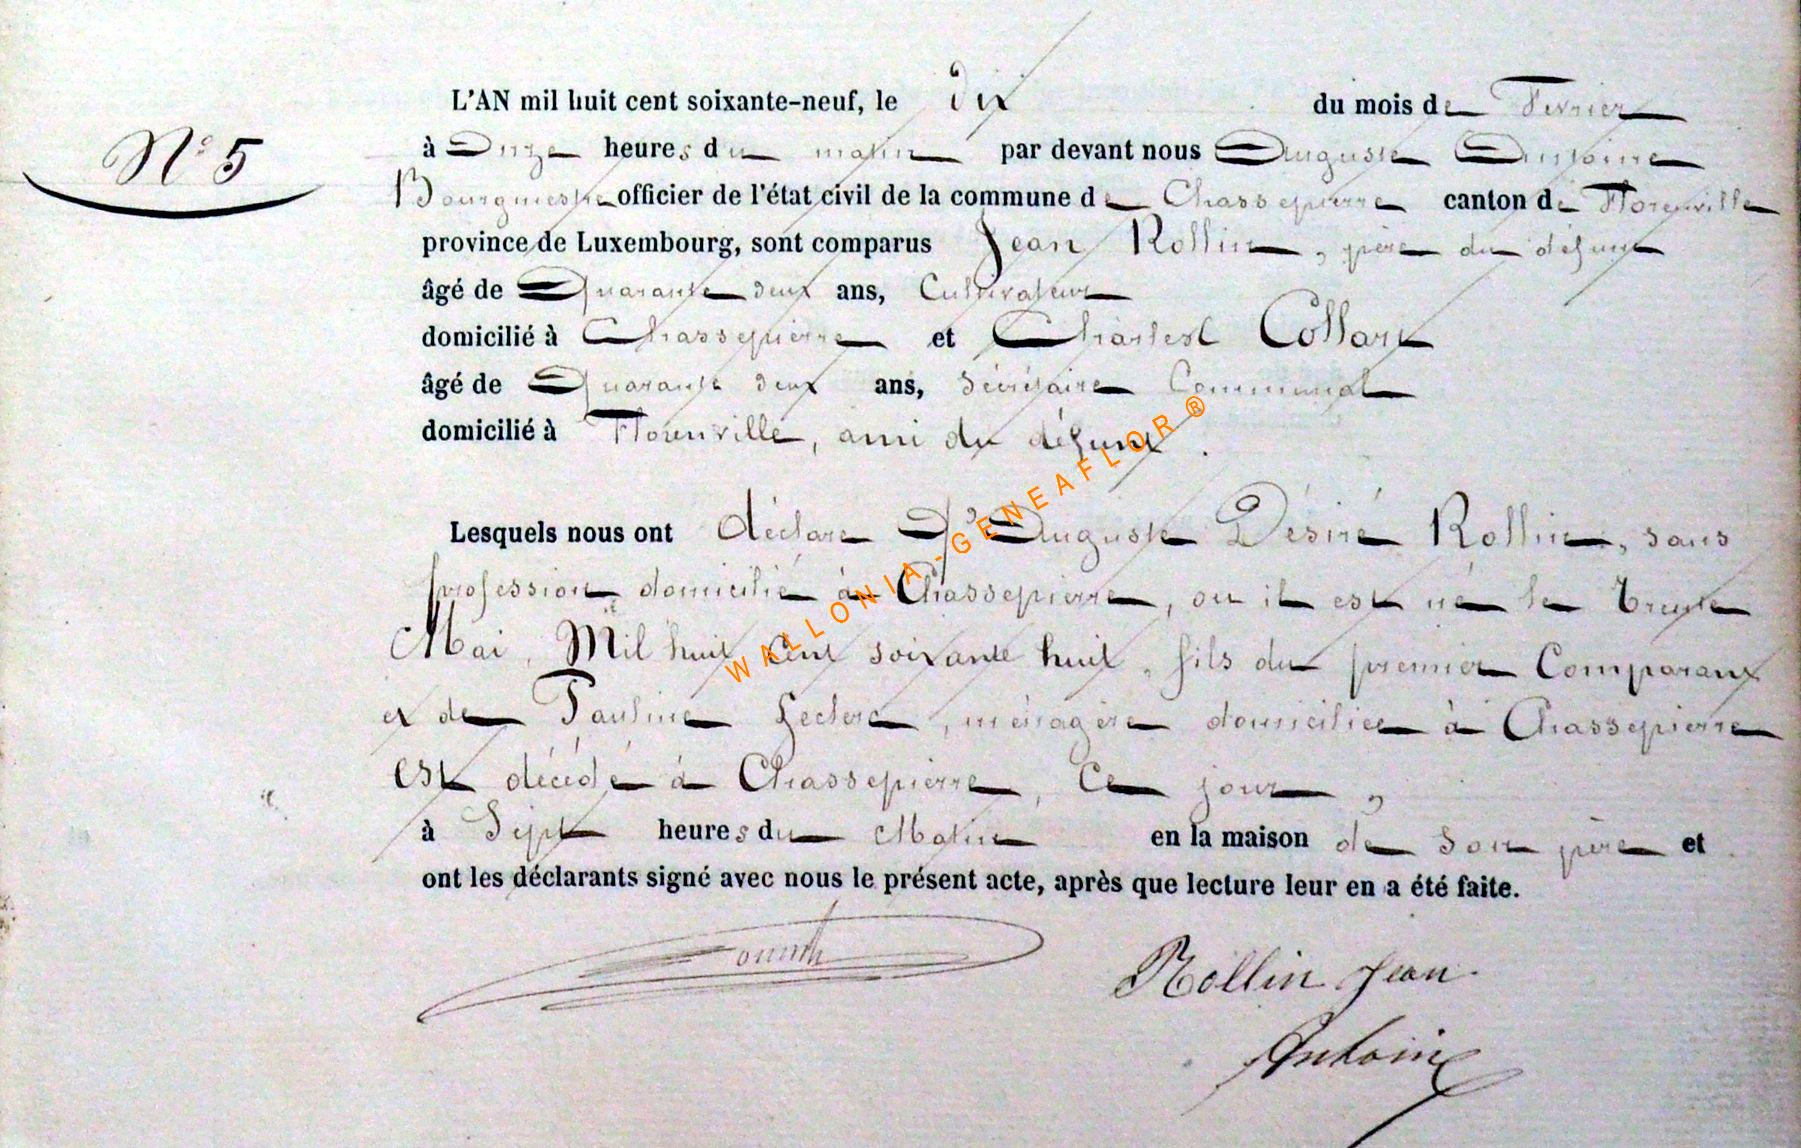 L'AN mil huit cent soixante-neuf, le dix du mois de Fevrier
N° 5
à Onze heures du matin par devant nous Auguste Antoine
Bourgmestre officier de l'état civil de la commune de Chassepierre canton de Florenville
province de Luxembourg, sont comparus Jean Rollin, père du défunt
âgé de Quarante deux ans, Cultivateur
domicilié à Chassepierre et Charles Collart
âgé de Quarante deux ans, Sécrétaire Communal
domicilié à Florenville, ami du défunt.
Lesquels nous ont déclaré Q'Auguste Désiré Rollin, sans
profession domicilié à Chassepierre, ou il est né le trente
Mai, Mil huit Cent soixante huit, fils du premier Comparant
et de Pauline Leclerc, ménagère domiciliée à Chassepierre
est décédé à Chassepierre, Ce jour,
à Sept heures du Matin en la maison de son père et
ont les déclarants signé avec nous le présent acte, après que lecture leur en a été faite.
Rollin Jean
Antoine
WALLONIA-GENEAFLOR®